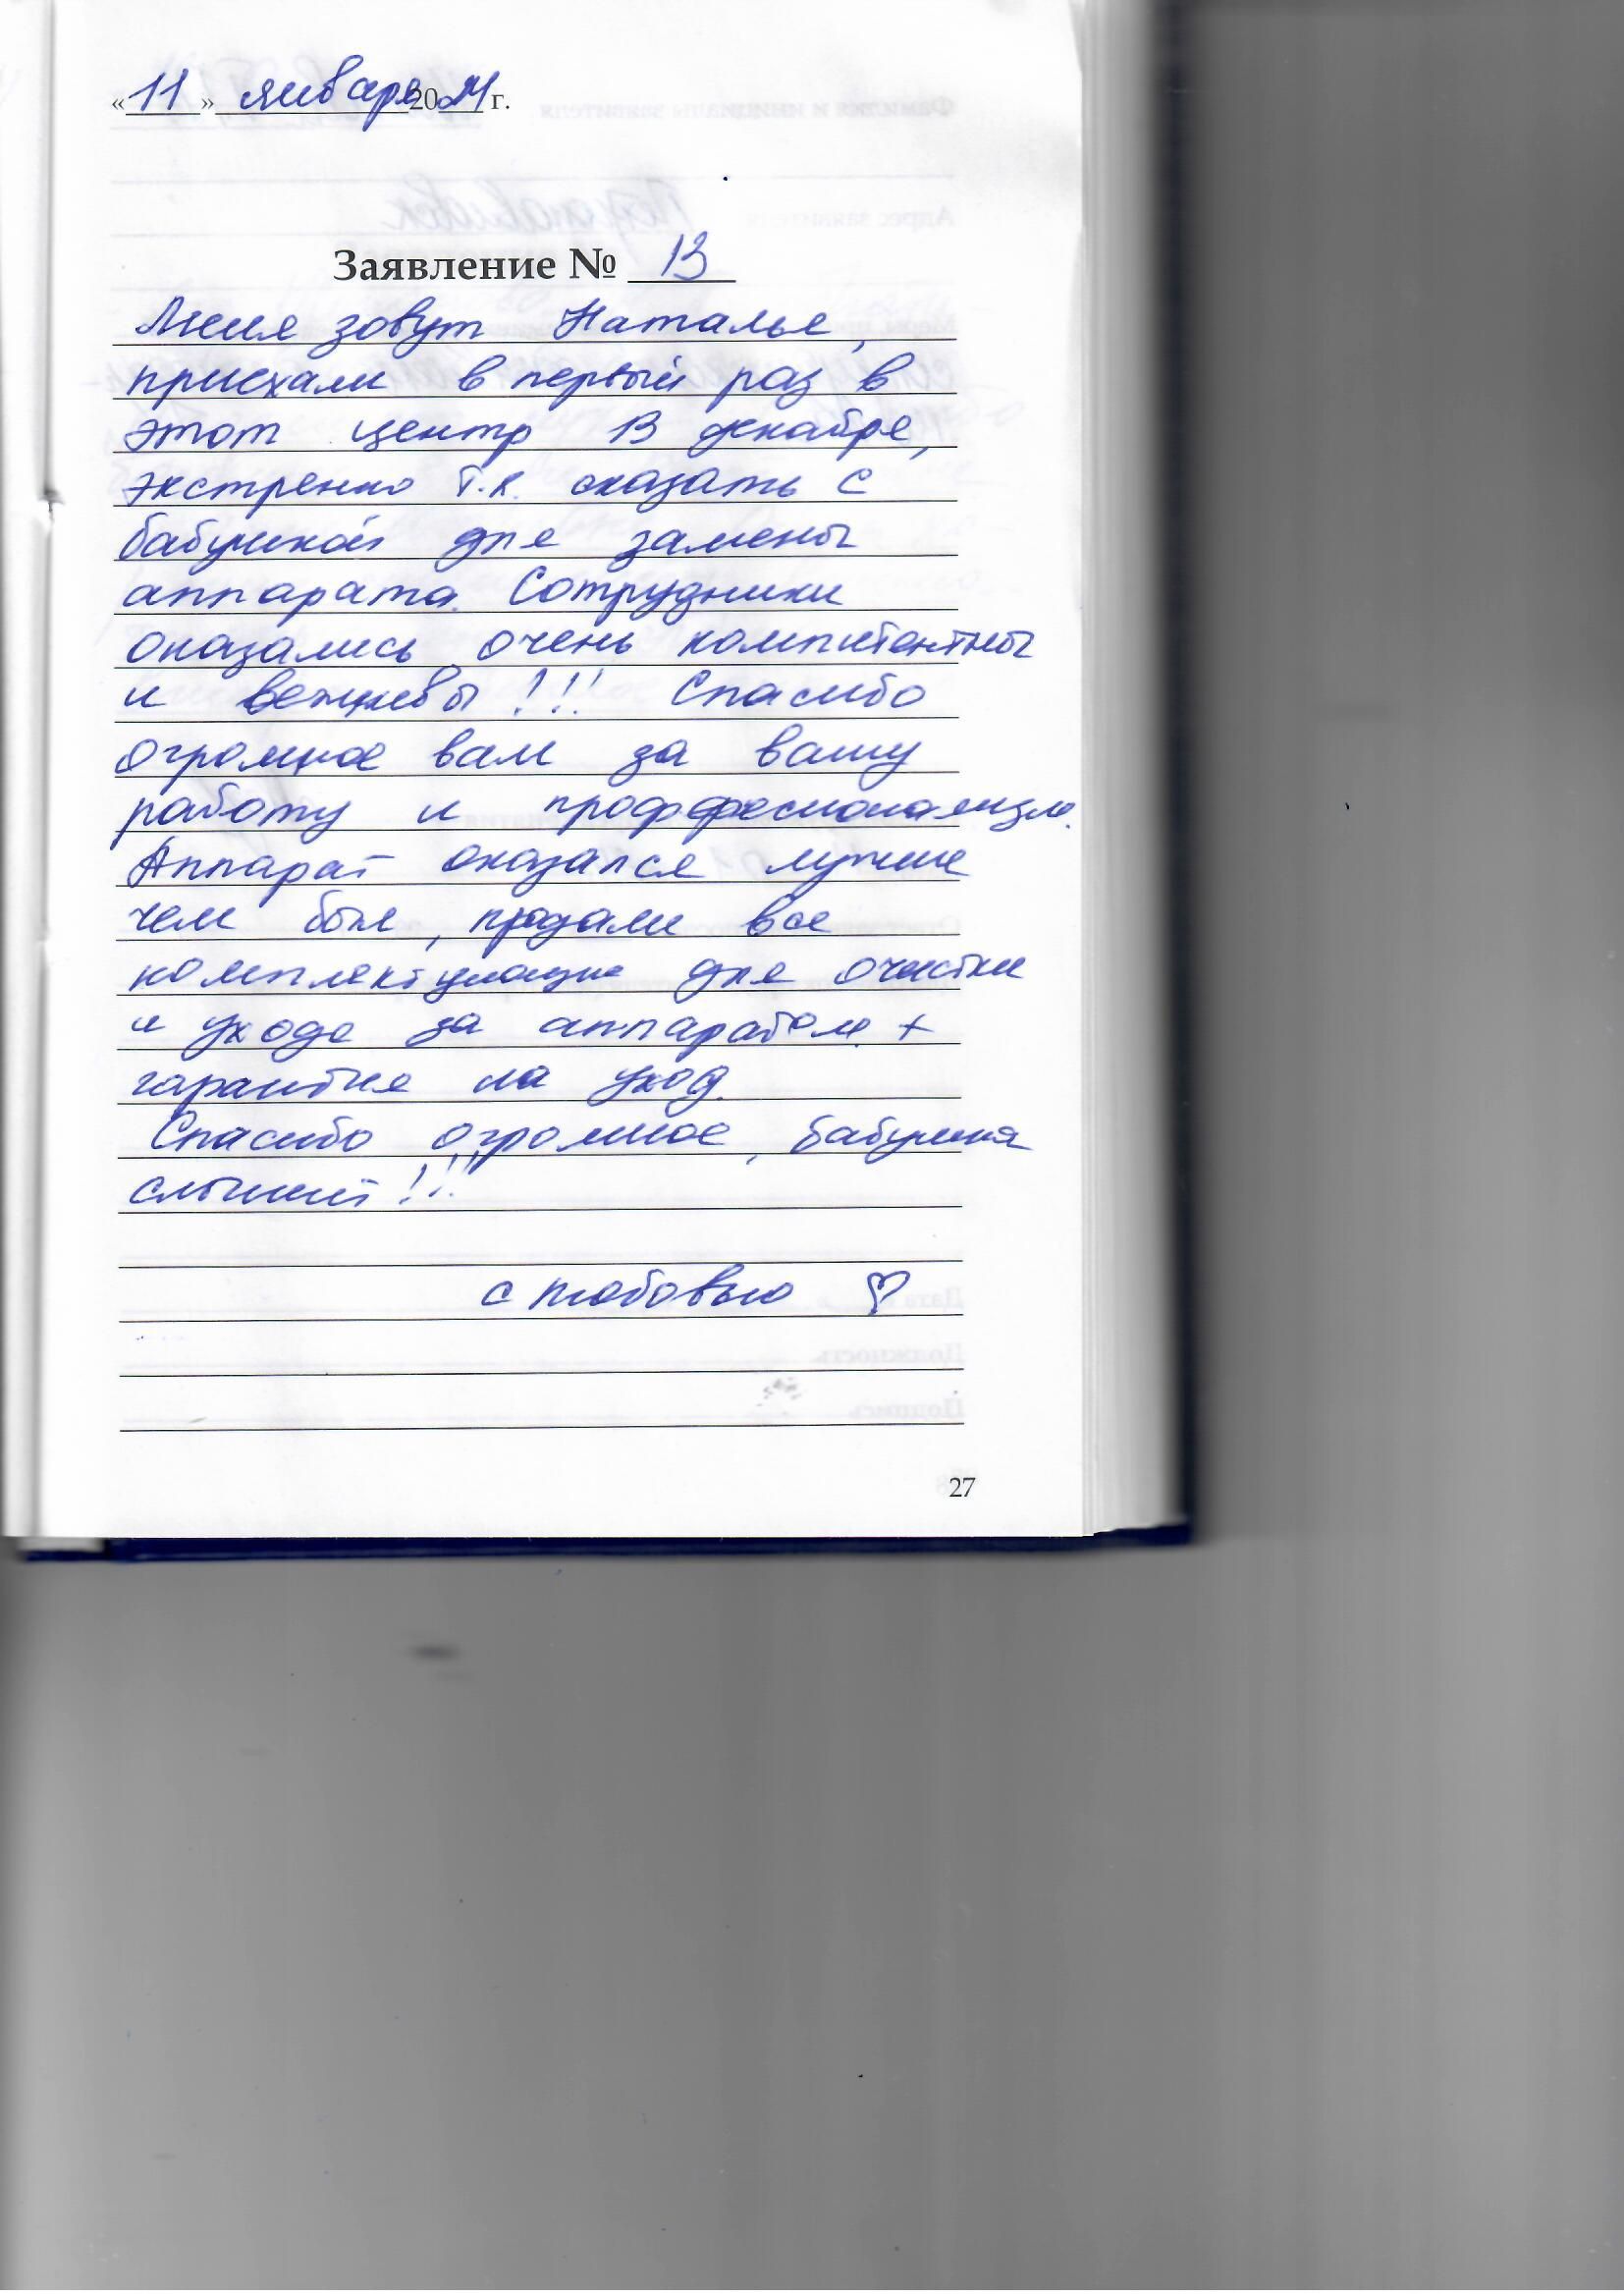 « 11 » января 2024 г.
Заявление № 13
Меня зовут Наталья,
приехали в первый раз в
этот центр 13 декабря,
экстренно т.к.       с
бабушкой для замены
аппарата. Сотрудники
оказались очень компитентны
и вежливы!!! Спасибо
огромное вам за вашу
работу и проффесионализм.
Аппарат оказался лучше
чем был, продали все
комплектующие для очистки
и ухода за аппаратом +
гарантия на уход.
Спасибо огромное, бабушка
слышит!!!
с любовью ♡
27